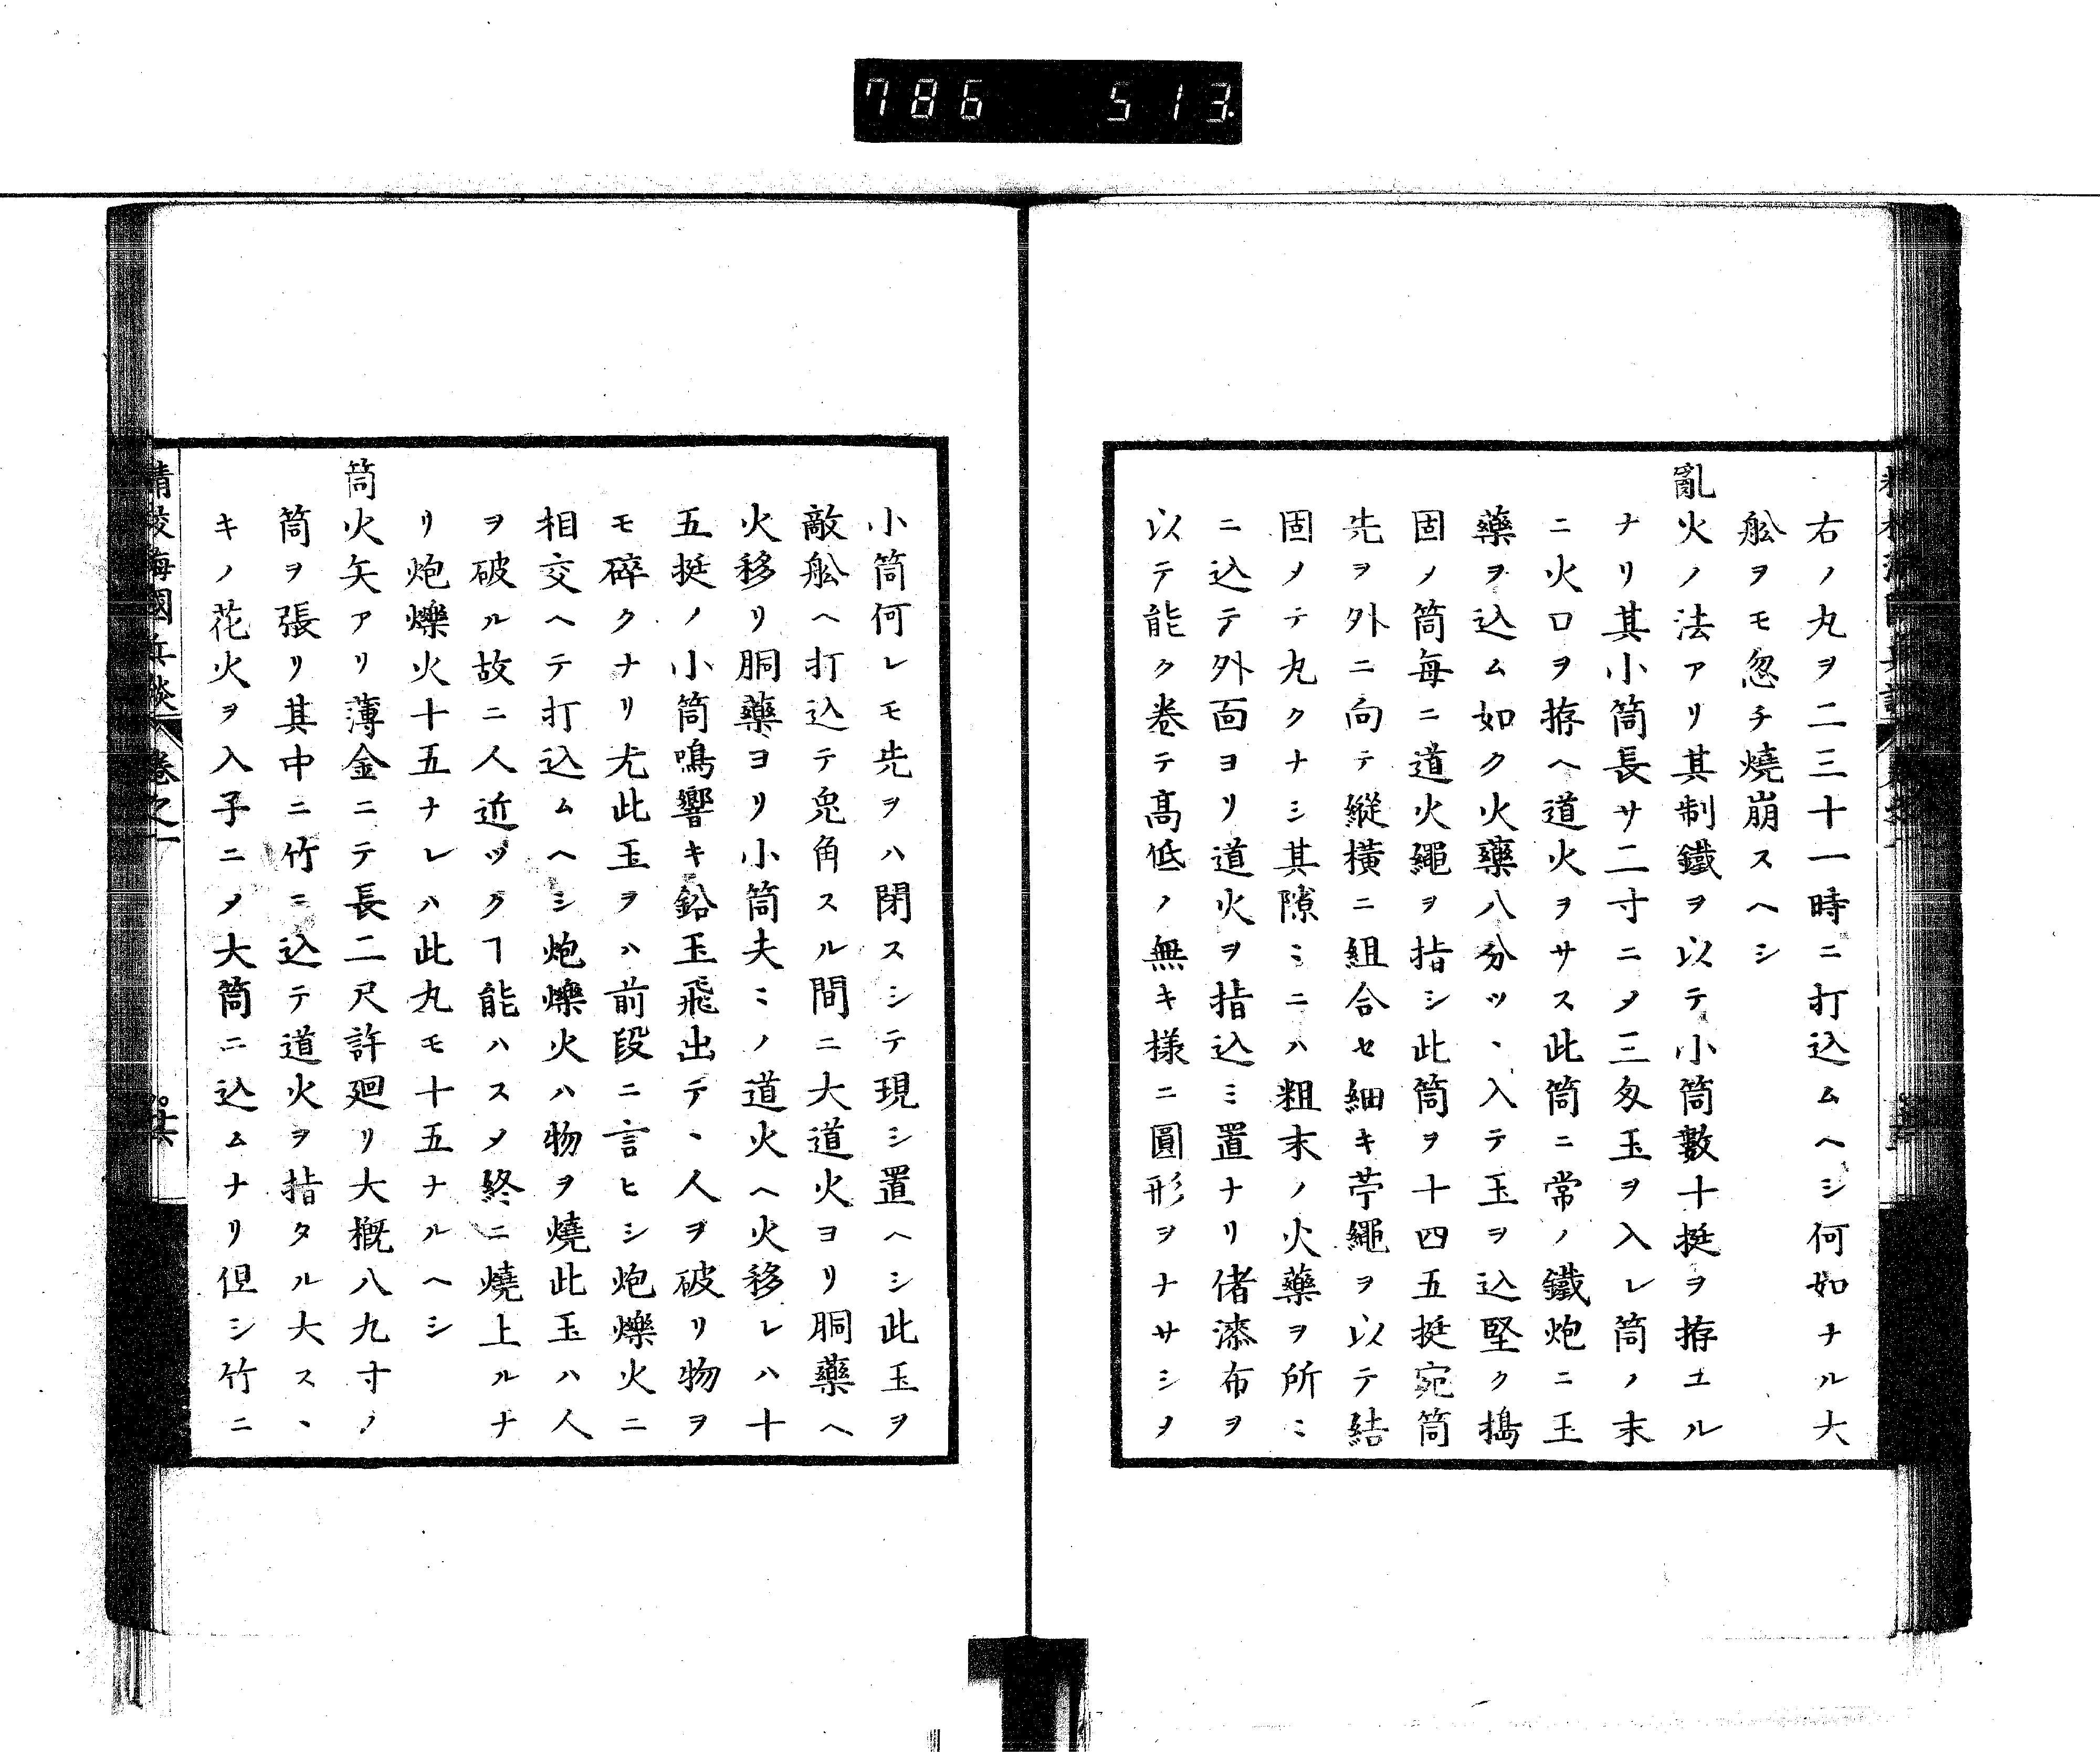 786 513
右ノ丸ヲ二三十一時ニ打込ムヘシ何如ナル大
舩ヲモ忽チ燒崩スヘシ
亂火ノ法アリ其制鐵ヲ以テ小筒數十挺ヲ拵エル
ナリ其小筒長サ二寸ニ〆三匁玉ヲ入レ筒ノ末
ニ火口ヲ拵ヘ道火ヲサス此筒ニ常ノ鐵炮ニ玉
藥ヲ込ム如ク火藥八分ツヽ入テ玉ヲ込堅ク搗
固ノ筒毎ニ道火繩ヲ指シ此筒ヲ十四五挺宛筒
先ヲ外ニ向テ縱橫ニ組合セ細キ苧繩ヲ以テ結
固メテ丸クナシ其隙ミニハ粗末ノ火藥ヲ所ミ
ニ込テ外面ヨリ道火ヲ指込ミ置ナリ偖漆布ヲ
以テ能ク卷テ高低ノ無キ様ニ圓形ヲナサシ〆
小筒何レモ先ヲハ閉スシテ現シ置ヘシ此玉ヲ
敵舩ヘ打込テ兎角スル間ニ大道火ヨリ胴藥ヘ
火移リ胴藥ヨリ小筒夫ミノ道火ヘ火移レハ十
五挺ノ小筒鳴響キ鉛玉飛出テヽ人ヲ破リ物ヲ
モ碎クナリ尤此玉ヲハ前段ニ言ヒシ炮爍火ニ
相交ヘテ打込ムヘシ炮爍火ハ物ヲ燒此玉ハ人
ヲ破ル故ニ人近ツクヿ能ハス〆終ニ燒上ルナ
リ炮爍火十五ナレハ此丸モ十五ナルヘシ
筒火矢アリ薄金ニテ長二尺許廻リ大概八九寸ノ
筒ヲ張リ其中ニ竹ニ込テ道火ヲ指タル大スヽ
キノ花火ヲ入子ニ〆大筒ニ込ムナリ但シ竹ニ
精校海國兵談 卷之一